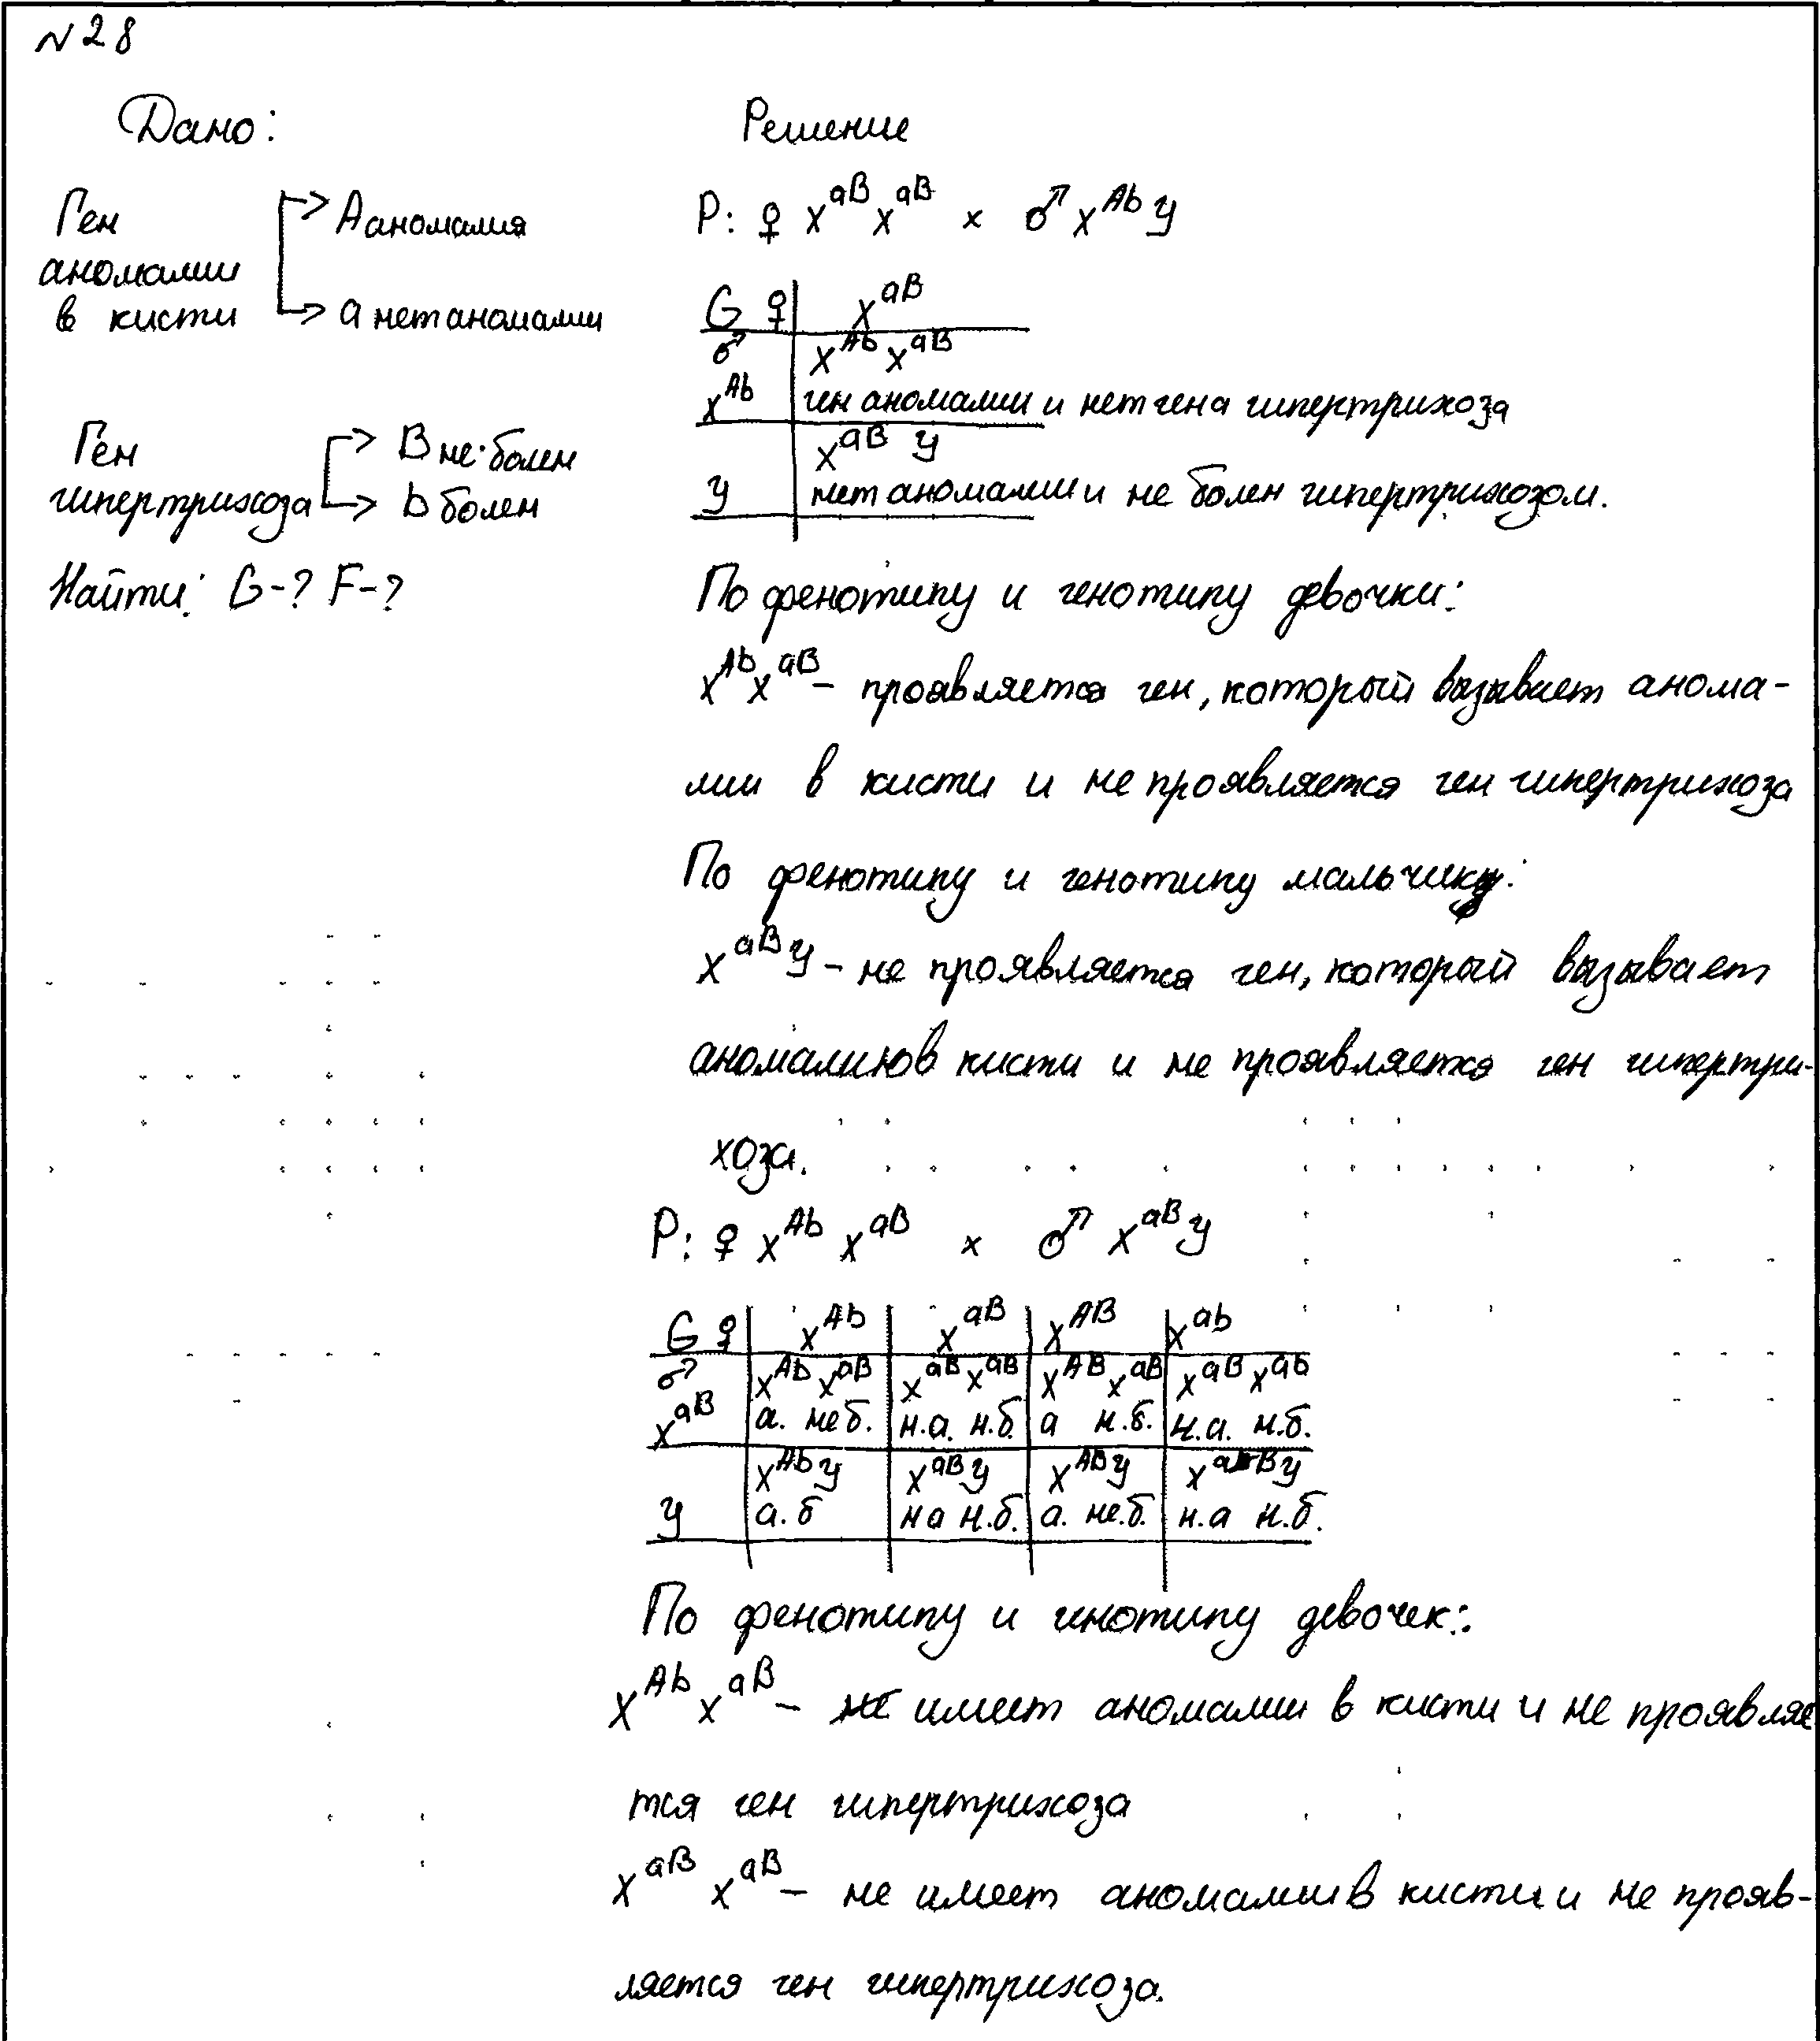 №28
Дано:
Решение
Ген аномалии в кисти
A аномалия
a нет аномалии
Ген гипертрихоза
B не болен
b болен
Найти: G-? F-?
P: ♀ X^aB X^aB × ♂ X^Ab У
G ♀ | X^aB
♂ X^Ab | X^Ab X^aB
ген аномалии и нет гена гипертрихоза
У | X^aB У
нет аномалии и не болен гипертрихозом.
По фенотипу и генотипу девочки:
X^Ab X^aB – проявляется ген, который вызывает анома-
лии в кисти и не проявляется ген гипертрихоза
По фенотипу и генотипу мальчику:
X^aB У – не проявляется ген, который вызывает
аномалиюв кисти и не проявляется ген гипертри-
хоза.
P: ♀ X^Ab X^aB × ♂ X^aB У
G ♀ | X^Ab | X^aB | X^AB | X^ab
♂ X^aB | X^Ab X^aB | X^aB X^aB | X^AB X^aB | X^aB X^ab
а. не б. | н.а. н.б. | а н.б. | н.а. н.б.
У | X^Ab У | X^aB У | X^AB У | X^aB У
а. б | на н.б. | а. не.б. | н.а н.б.
По фенотипу и генотипу девочек:
X^Ab X^aB – имеет аномалии в кисти и не проявляе
тся ген гипертрихоза
X^aB X^aB – не имеет аномалии в кисти и не прояв-
ляется ген гипертрихоза.